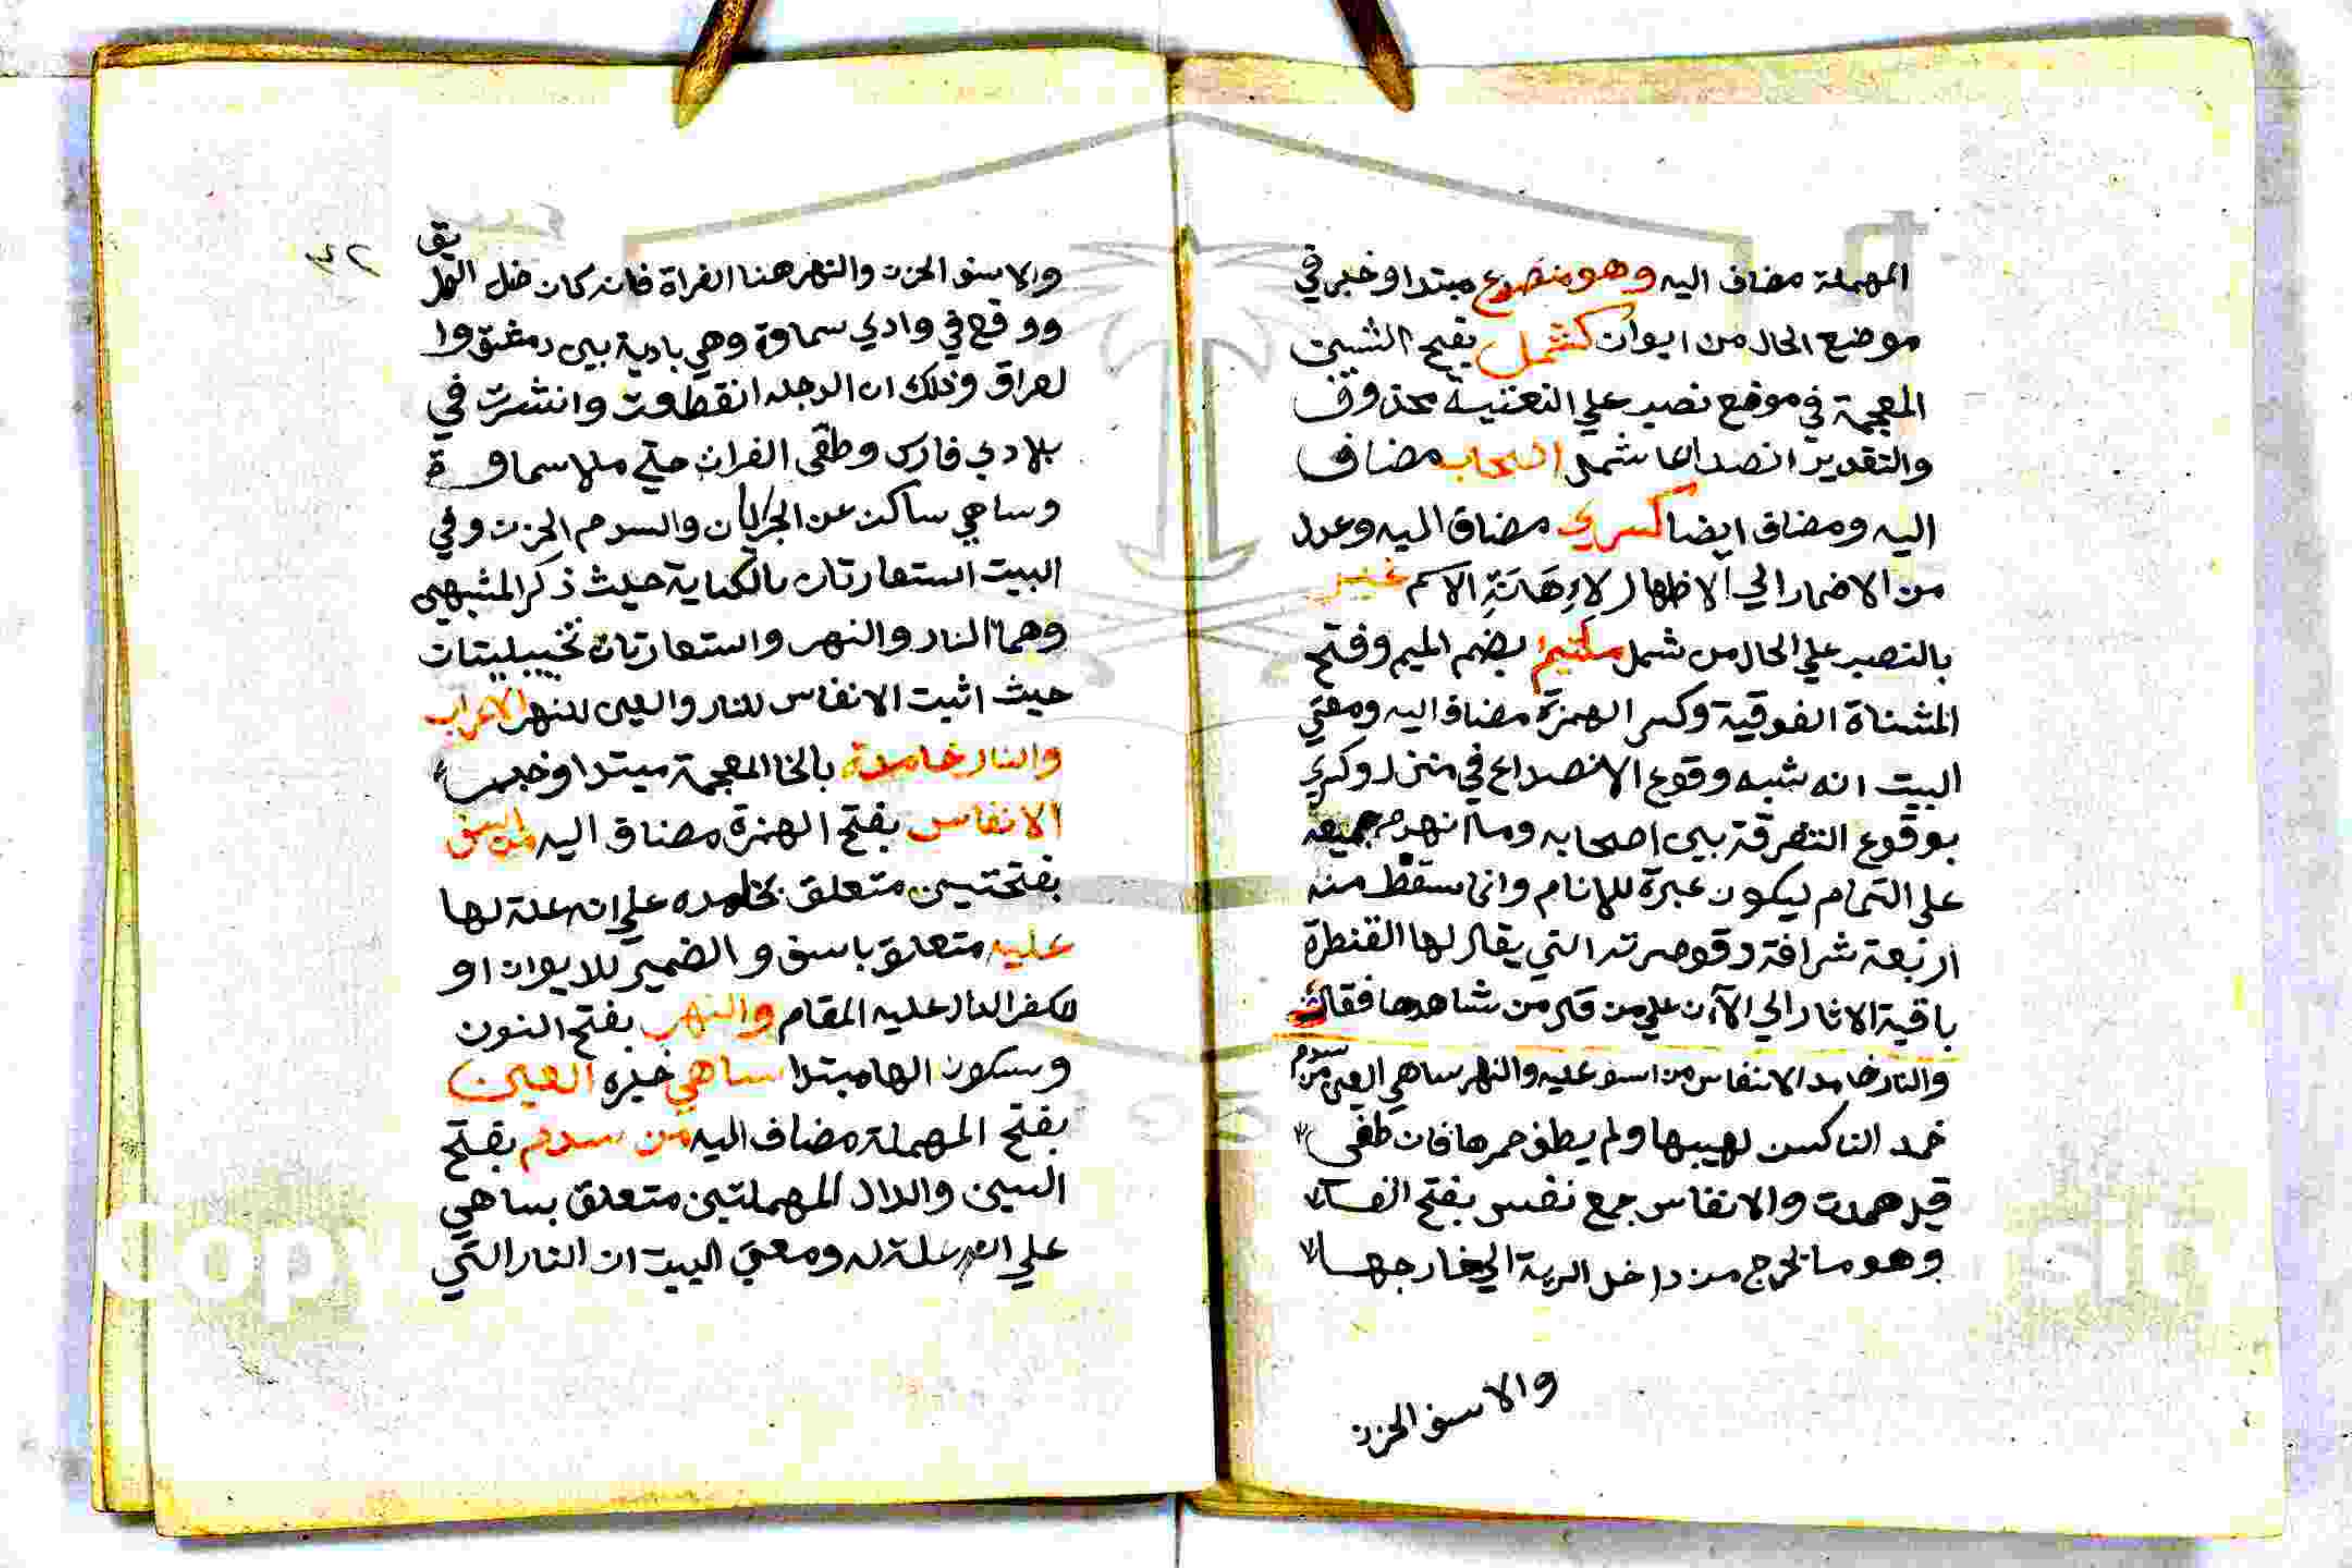 المهملة مضاف اليه وهو منصدع مبتدا وخبر في
موضع الحال من ايوان كشمل بفتح الشين
المعجمة في موضع نصب علي النعتية محذوف
والتقدير انصداعا كشمل اصحاب مضاف
اليه ومضاف ايضا كسري مضاف اليه وعدل
من الاضمار الي الاظهار لاِهَانَةِ الاسم غير
بالنصب علي الحال من شمل ملتئم بضم الميم وفتح
المثناة الفوقية وكسر الهمزة مضاف اليه ومعني
البيت انه شبه وقوع الانصداع في منزل وكسري
بوقوع التفرقة بين اصحابه وما انهدم جميعه
علي التمام ليكون عبرة للانام وانما سقط منه
اربعة شرافة وقوصرته التي يقال لها القنطرة
باقية الاثار الي الآن علي من قدم من شاهدها فقال
والنار خامد الانفاس من اسف عليه والنهر ساهي العين من سدم
خمد النا كسن لهيبها ولم يطف جمرها فان طفي
قيل همدت والانفاس جمع نفس بفتح الفاء
وهو ما تخرج من داخل الرية الي خارجها
والاسف الحزن
٣٢
والاسف الحزن والنهر هنا الفراة فانه كان ضل الطريق
ووقع في وادي سماوة وهي بادية بين دمشق وا
لعراق وذلك ان الدجله انقطعت وانتشرت في
بلادي فارس وطقى الفرات حتي ملا سماوة
وساهي ساكن عن الجريان والسدم الحزن وفي
البيت استعارتان بالكناية حيث ذكر المشبهين
وهما النار والنهر واستعارتان تخييليتات
حيث اثبت الانفاس للنار والعين للنهر الاعراب
والنار خامدة بالخا المعجمة مبتدا وخبر
الانفاس بفتح الهمزة مضاف اليه من اسف
بفتحتين متعلق بخامده علي انه علة لها
عليه متعلق باسف والضمير للايوان او
للكفر الدال عليه المقام والنهر بفتح النون
وسكون الها مبتدا ساهي خبره العين
بفتح المهملة مضاف اليه من سدم بفتح
السين والدال المهملتين متعلق بساهي
علي انه علة له ومعني البيت ان النار التي